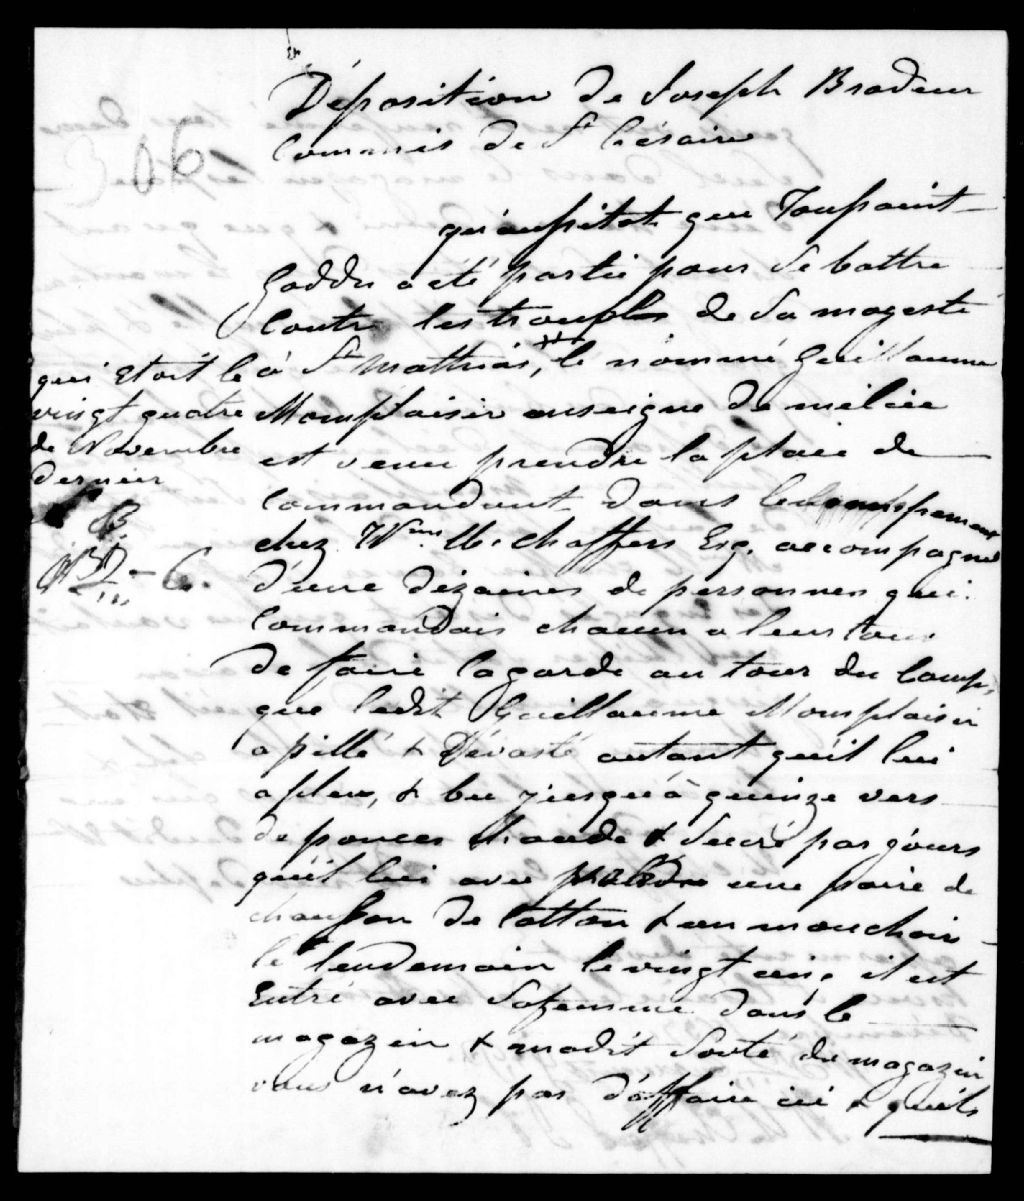 Déposition de Joseph Bradeur
Commis de St Césaire
306
qu'aussitot que Toussaint
Goddu a été partie pour se battre
Contre les trouples de Sa magesté
à St Mathias, le nommé Guillaume
qui etoit le
vingt quatre
de Novembre
dernier
JB
Momplaisir enseigne de milice
est venu prendre la place de
Commandant dans le
chez Wm. U. Chaffers Esq. accompagné
d'une dizaines de personnes qui
Commandais chacun a leur tour
de faire la garde au tour du Camp,
que ledit Guillaume Momplaisir
a pillé & Dévasté autant qu'il lui
a plu, & bu jusqu'à quinze vers
de ponces chaude & Sucré par jours
qu'il lui avu prendre une paire de
chausson de Cotton & un mouchoir
le lendemain le vingt cinq il est
Entré avec Safemme dans le
magazin & madit Sorté du magazin
vous n'avez pas d'affaire ici & qu'ils